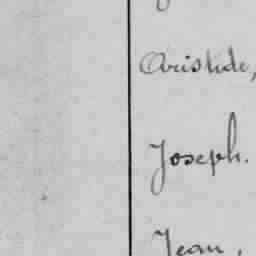 Aristide,
Joseph.
Jean,